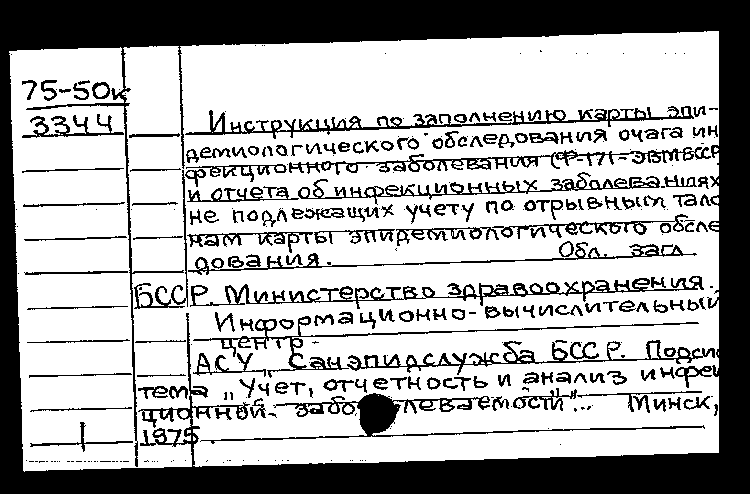 75-50к
3344
Инструкция по заполнению карты эпи-
демиологического обследования очага ин
фекционного заболевания (Ф-171-ЭВМБССР
и отчета об инфекционных заболеваниях
не подлежащих учету по отрывным тало
нам карты эпидемиологического обсле
дования. Обл. загл.
БССР. Министерство здравоохранения.
Информационно-вычислительный
центр.
АСУ „Санэпидслужба БССР. Подсис
тема „Учет, отчетность и анализ инфек
ционной заболеваемости"... Минск,
1 1975.